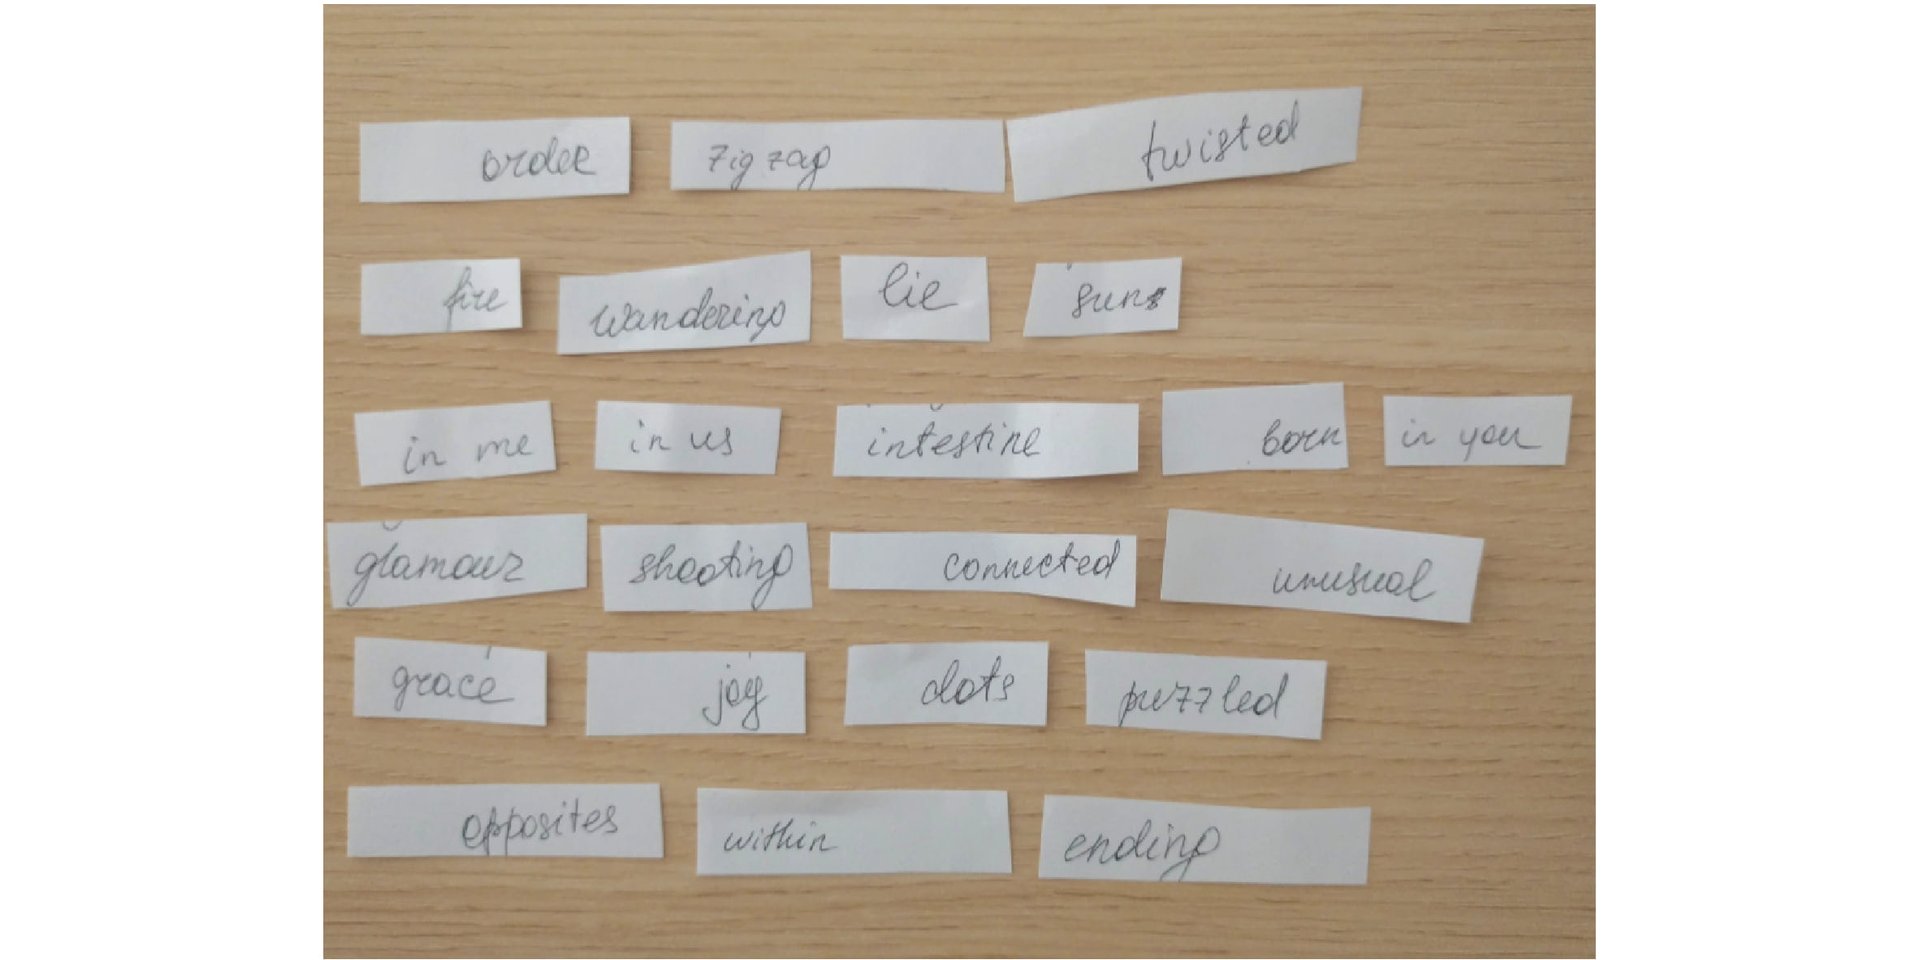 order zigzag twisted
fire wandering lie suns
in me in us intestine born in you
glamour shooting connected unusual
grace joy dots puzzled
opposites within ending